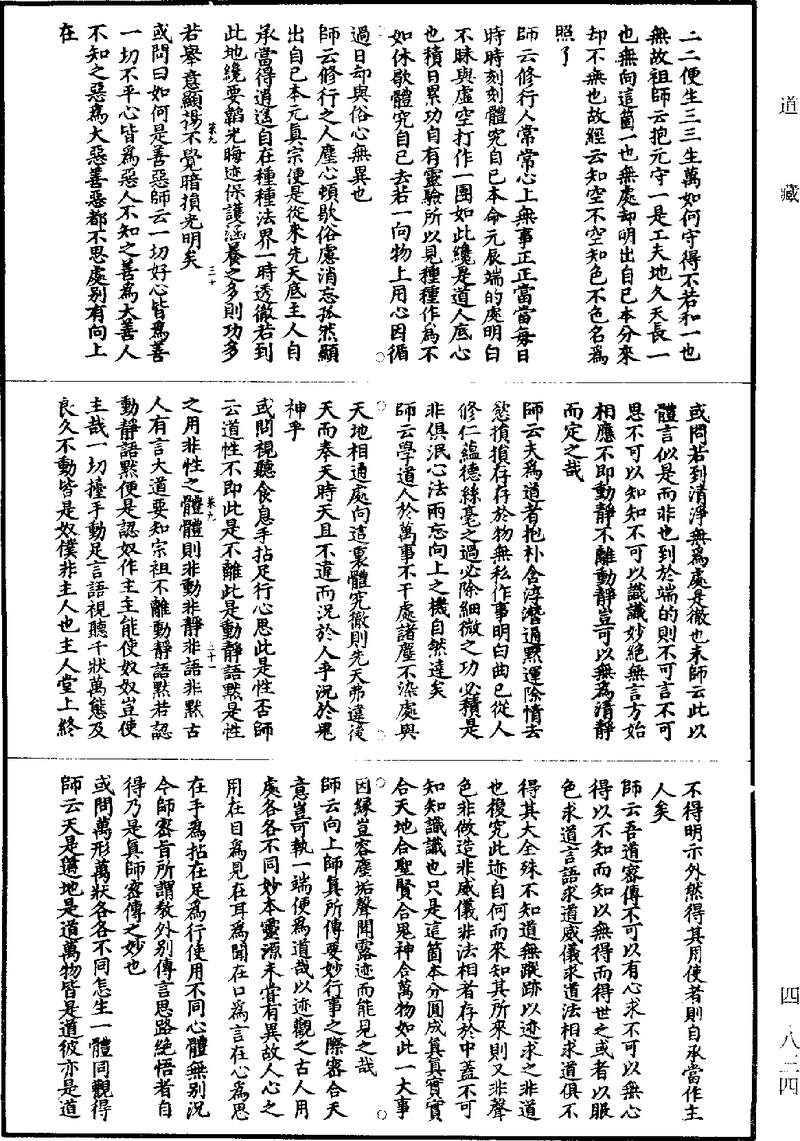 道藏
二二便生三三生萬如何守得不若和一也
無故祖師云抱元守一是工夫地久天長一
也無向這箇一也無處却明出自己本分來
却不無也故經云知空不空知色不色名爲
照了
師云修行人常常心上無事正正當當每日
時時刻刻體究自己本命元辰端的處明白
不昧與虛空打作一團如此纔是道人底心
也積日累功自有靈驗所以見種種作爲不
如休歇體究自己去若一向物上用心因循
過日却與俗心無異也
師云修行之人塵心頓歇俗慮消忘孤然顯
出自己本元眞宗便是從來先天底主人自
承當得逍遙自在種種法界一時透徹若到
此地纔要韜光晦迹保護涵養之多則功多
若舉意顯揚不覺暗損光明矣
葉九
三十
或問曰如何是善惡師云一切好心皆爲善
一切不平心皆爲惡人不知之善爲大善人
不知之惡爲大惡善惡都不思處別有向上
在
或問若到清淨無爲處是徹也未師云此以
體言似是而非也到於端的則不可言不可
思不可以知知不可以識識妙絕無言方始
相應不即動靜不離動靜豈可以無爲清靜
而定之哉
師云夫爲道者抱朴含淳潛通默運除情去
慾損損存存於物無私作事明白曲己從人
修仁蘊德絲毫之過必除細微之功必積是
非俱泯心法兩忘向上之機自然達矣
師云學道人於萬事不干處諸塵不染處與
天地相通處向這裏體究徹則先天弗違後
天而奉天時天且不違而況於人乎況於鬼
神乎
或問視聽食息手拈足行心思此是性否師
云道性不即此是不離此是動靜語默是性
之用非性之體體則非動非靜非語非默古
葉九
三十一
人有言大道要知宗祖不離動靜語默若認
動靜語默便是認奴作主主能使奴奴豈使
主哉一切擡手動足言語視聽千狀萬態及
良久不動皆是奴僕非主人也主人堂上終
不得明示外然得其用使者則自承當作主
人矣
師云吾道密傳不可以有心求不可以無心
得以不知而知以無得而得世之或者以眼
色求道言語求道威儀求道法相求道俱不
得其大全殊不知道無蹤跡以迹求之非道
也復究此迹自何而來知其所來則又非聲
色非做造非威儀非法相者存於中蓋不可
知知識識也只是這箇本分圓成眞眞實實
合天地合聖賢合鬼神合萬物如此一大事
因緣豈容塵垢聲聞露迹而能見之哉
師云向上師眞所傳要妙行事之際密合天
意豈可執一端便爲道哉以迹觀之古人用
處各各不同妙本靈源未嘗有異故人心之
用在目爲見在耳爲聞在口爲言在心爲思
在手爲拈在足爲行使用不同心體無別況
今師密旨所謂教外別傳言思路絕悟者自
得乃是眞師密傳之妙也
或問萬形萬狀各各不同怎生一體同觀得
師云天是道地是道萬物皆是道彼亦是道
四·八二四